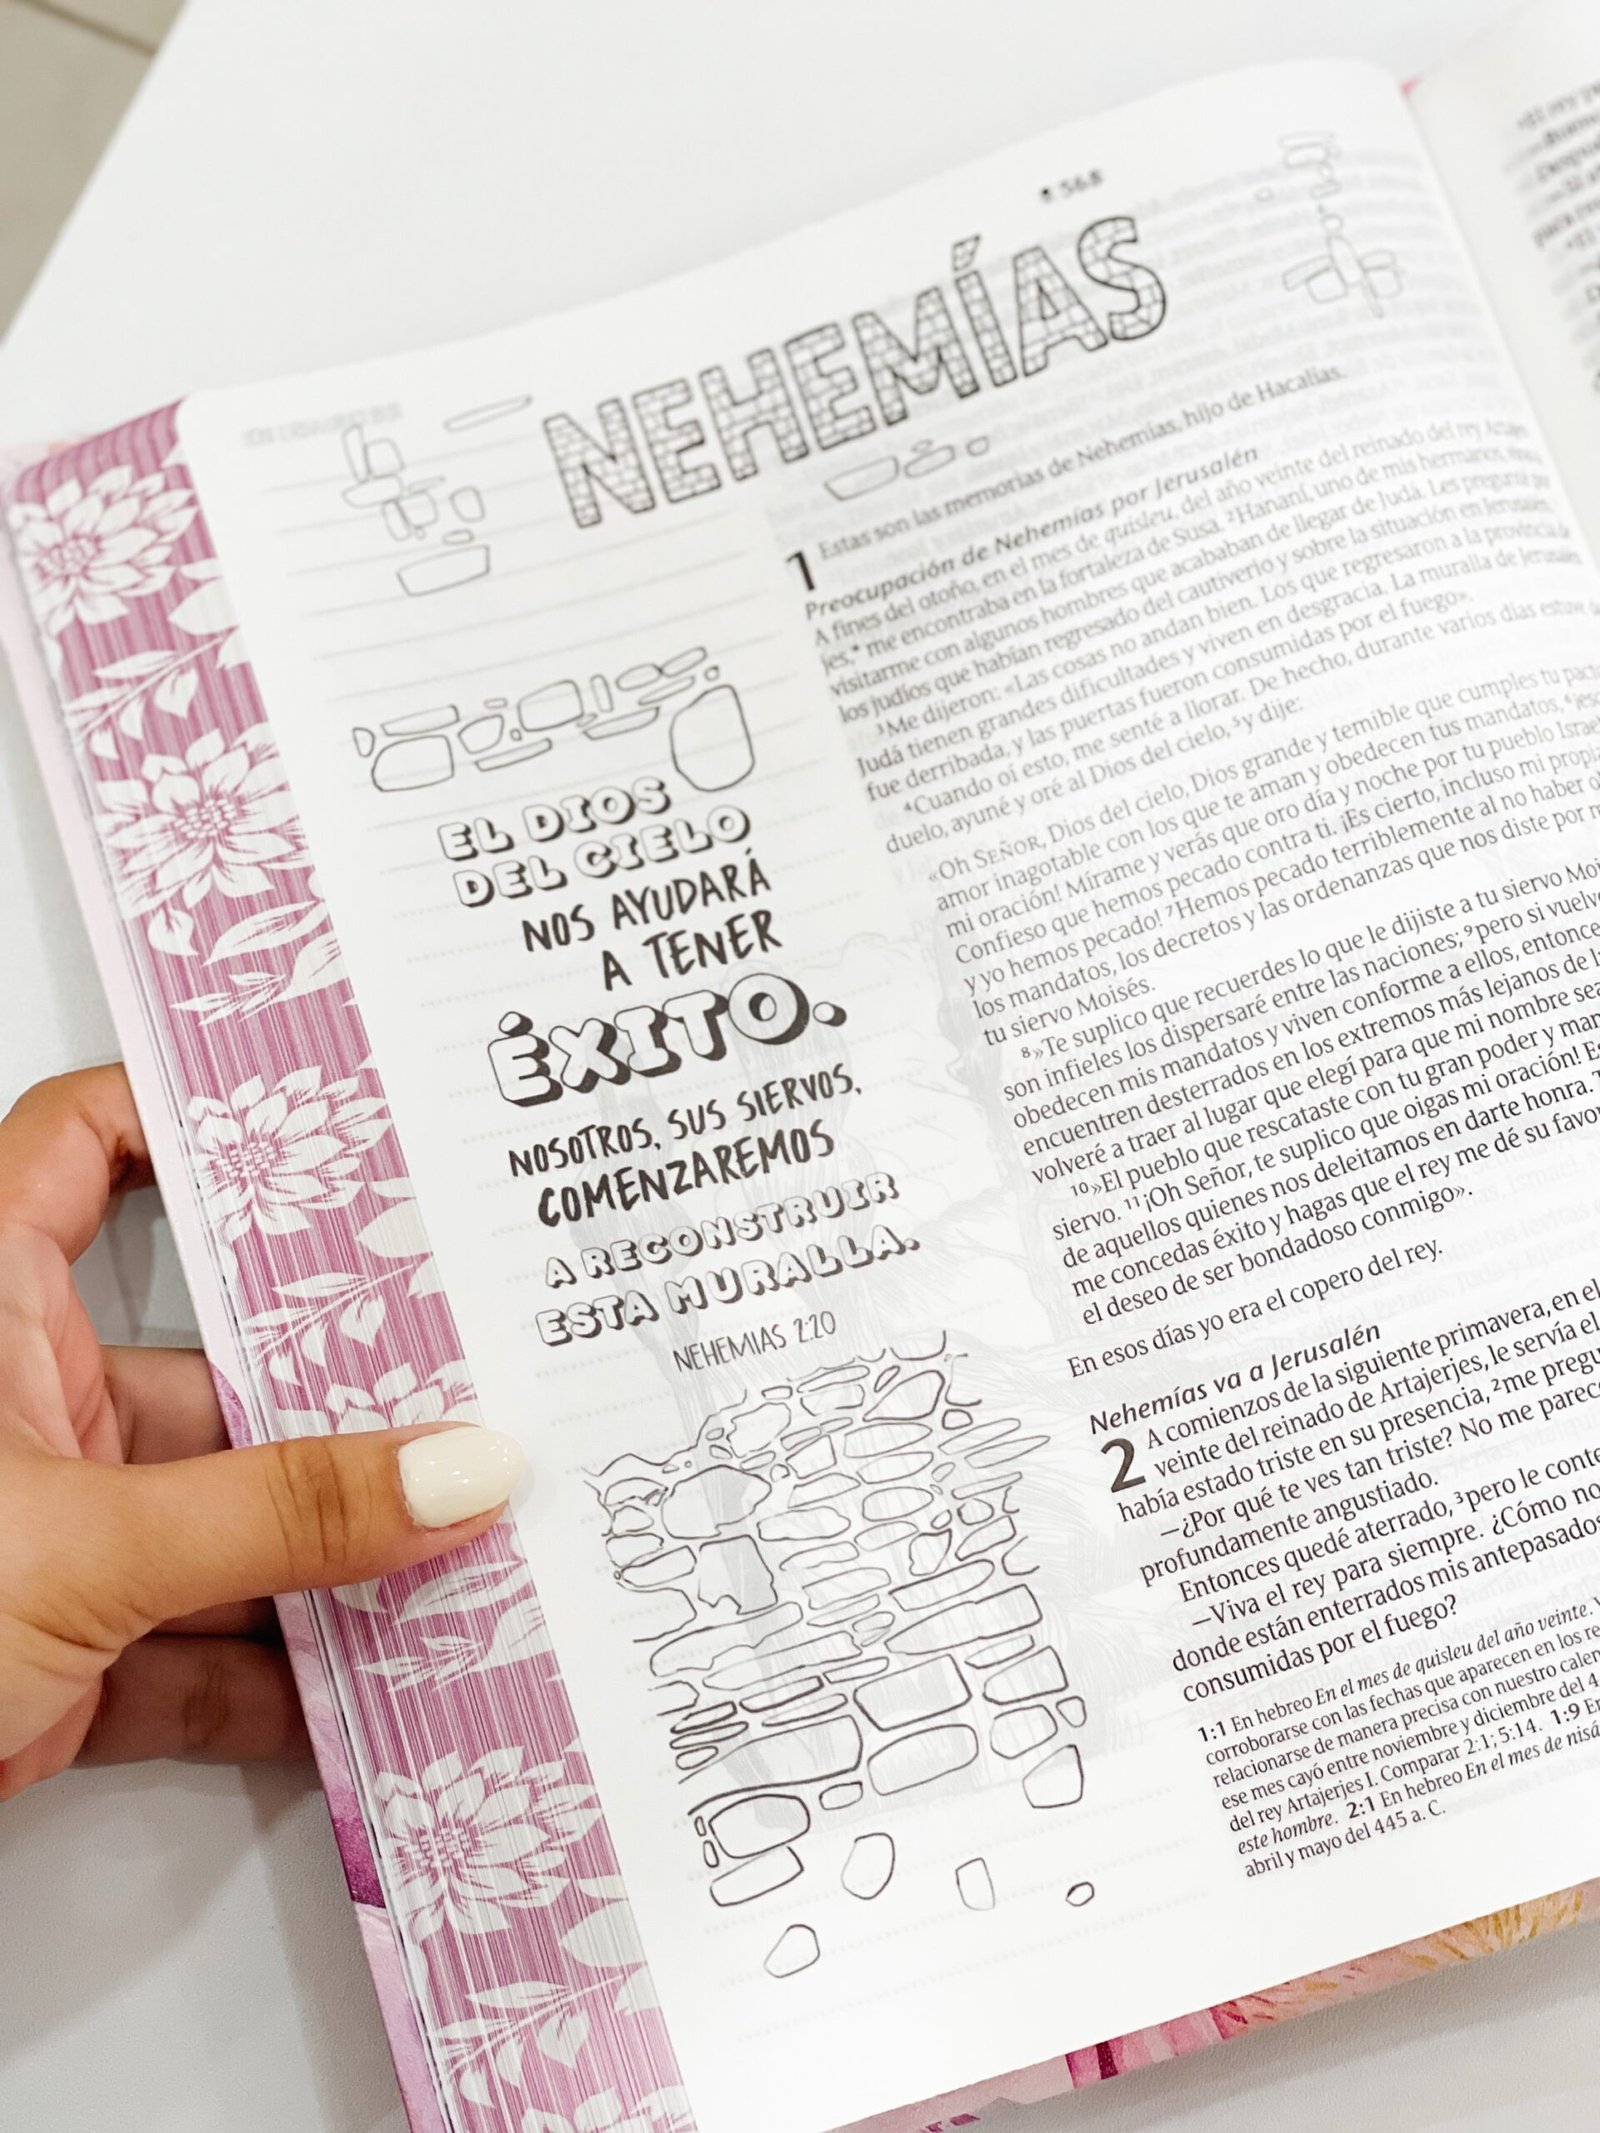 568
NEHEMÍAS
EL DIOS
DEL CIELO
NOS AYUDARÁ
A TENER
ÉXITO.
NOSOTROS, SUS SIERVOS,
COMENZAREMOS
A RECONSTRUIR
ESTA MURALLA.
NEHEMIAS 2:20
1 Estas son las memorias de Nehemías, hijo de Hacalías.
Preocupación de Nehemías por Jerusalén
A fines del otoño, en el mes de quisleu, del año veinte del reinado del rey Artajer-
jes,* me encontraba en la fortaleza de Susa. ²Hananí, uno de mis hermanos, vino a
visitarme con algunos hombres que acababan de llegar de Judá. Les pregunté por
los judíos que habían regresado del cautiverio y sobre la situación en Jerusalén.
³Me dijeron: «Las cosas no andan bien. Los que regresaron a la provincia de
Judá tienen grandes dificultades y viven en desgracia. La muralla de Jerusalén
fue derribada, y las puertas fueron consumidas por el fuego».
⁴Cuando oí esto, me senté a llorar. De hecho, durante varios días estuve de
duelo, ayuné y oré al Dios del cielo, ⁵y dije:
«Oh SEÑOR, Dios del cielo, Dios grande y temible que cumples tu pacto
amor inagotable con los que te aman y obedecen tus mandatos, ⁶¡esc
mi oración! Mírame y verás que oro día y noche por tu pueblo Israel
Confieso que hemos pecado contra ti. ¡Es cierto, incluso mi propia
y yo hemos pecado! ⁷Hemos pecado terriblemente al no haber o
los mandatos, los decretos y las ordenanzas que nos diste por m
tu siervo Moisés.
⁸»Te suplico que recuerdes lo que le dijiste a tu siervo Moi
son infieles los dispersaré entre las naciones; ⁹pero si vuelve
obedecen mis mandatos y viven conforme a ellos, entonce
encuentren desterrados en los extremos más lejanos de l
volveré a traer al lugar que elegí para que mi nombre sea
¹⁰»El pueblo que rescataste con tu gran poder y man
siervo. ¹¹¡Oh Señor, te suplico que oigas mi oración! Es
de aquellos quienes nos deleitamos en darte honra. T
me concedas éxito y hagas que el rey me dé su favor
el deseo de ser bondadoso conmigo».
En esos días yo era el copero del rey.
Nehemías va a Jerusalén
2 A comienzos de la siguiente primavera, en el
veinte del reinado de Artajerjes, le servía el
había estado triste en su presencia, ²me pregu
—¿Por qué te ves tan triste? No me parece
profundamente angustiado.
Entonces quedé aterrado, ³pero le conte
—Viva el rey para siempre. ¿Cómo no
donde están enterrados mis antepasados
consumidas por el fuego?
1:1 En hebreo En el mes de quisleu del año veinte. V
corroborarse con las fechas que aparecen en los re
relacionarse de manera precisa con nuestro calen
ese mes cayó entre noviembre y diciembre del 4
del rey Artajerjes I. Comparar 2:1; 5:14. 1:9 En
este hombre. 2:1 En hebreo En el mes de nisá
abril y mayo del 445 a. C.